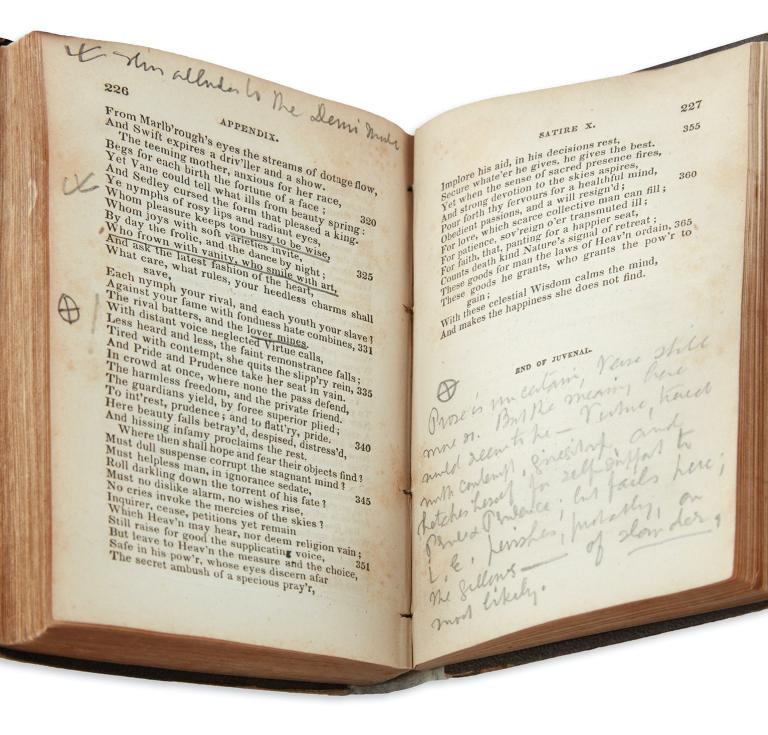 This alludes to the Demi Monde
226
APPENDIX.
From Marlb'rough's eyes the streams of dotage flow,
And Swift expires a driv'ller and a show.
The teeming mother, anxious for her race,
Begs for each birth the fortune of a face;
Yet Vane could tell what ills from beauty spring; 320
And Sedley cursed the form that pleased a king.
Ye nymphs of rosy lips and radiant eyes,
Whom pleasure keeps too busy to be wise,
Whom joys with soft varieties invite,
By day the frolic, and the dance by night; 325
Who frown with vanity, who smile with art,
And ask the latest fashion of the heart,
What care, what rules, your heedless charms shall
save,
Each nymph your rival, and each youth your slave?
Against your fame with fondness hate combines, 331
The rival batters, and the lover mines.
With distant voice neglected Virtue calls,
Less heard and less, the faint remonstrance falls;
Tired with contempt, she quits the slipp'ry rein, 335
And Pride and Prudence take her seat in vain.
In crowd at once, where none the pass defend,
The harmless freedom, and the private friend.
The guardians yield, by force superior plied;
To int'rest, prudence; and to flatt'ry, pride. 340
Here beauty falls betray'd, despised, distress'd,
And hissing infamy proclaims the rest.
Where then shall hope and fear their objects find?
Must dull suspense corrupt the stagnant mind?
Must helpless man, in ignorance sedate, 345
Roll darkling down the torrent of his fate?
Must no dislike alarm, no wishes rise,
No cries invoke the mercies of the skies?
Inquirer, cease, petitions yet remain
Which Heav'n may hear, nor deem religion vain;
Still raise for good the supplicating voice, 351
But leave to Heav'n the measure and the choice,
Safe in his pow'r, whose eyes discern afar
The secret ambush of a specious pray'r,
SATIRE X.
227
Implore his aid, in his decisions rest, 355
Secure whate'er he gives, he gives the best.
Yet when the sense of sacred presence fires,
And strong devotion to the skies aspires,
Pour forth thy fervours for a healthful mind,
Obedient passions, and a will resign'd; 360
For love, which scarce collective man can fill;
For patience, sov'reign o'er transmuted ill;
For faith, that, panting for a happier seat,
Counts death kind Nature's signal of retreat;
These goods for man the laws of Heav'n ordain, 365
These goods he grants, who grants the pow'r to
gain;
With these celestial Wisdom calms the mind,
And makes the happiness she does not find.
END OF JUVENAL.
Prose is uncertain, Verse still
more so. But the meaning here
would seem to be — Virtue, tired
with contempt, and
herself for self-support to
Pride & Prudence, but fails here;
i.e. perishes, probably, on
the gallows — of slander,
most likely.